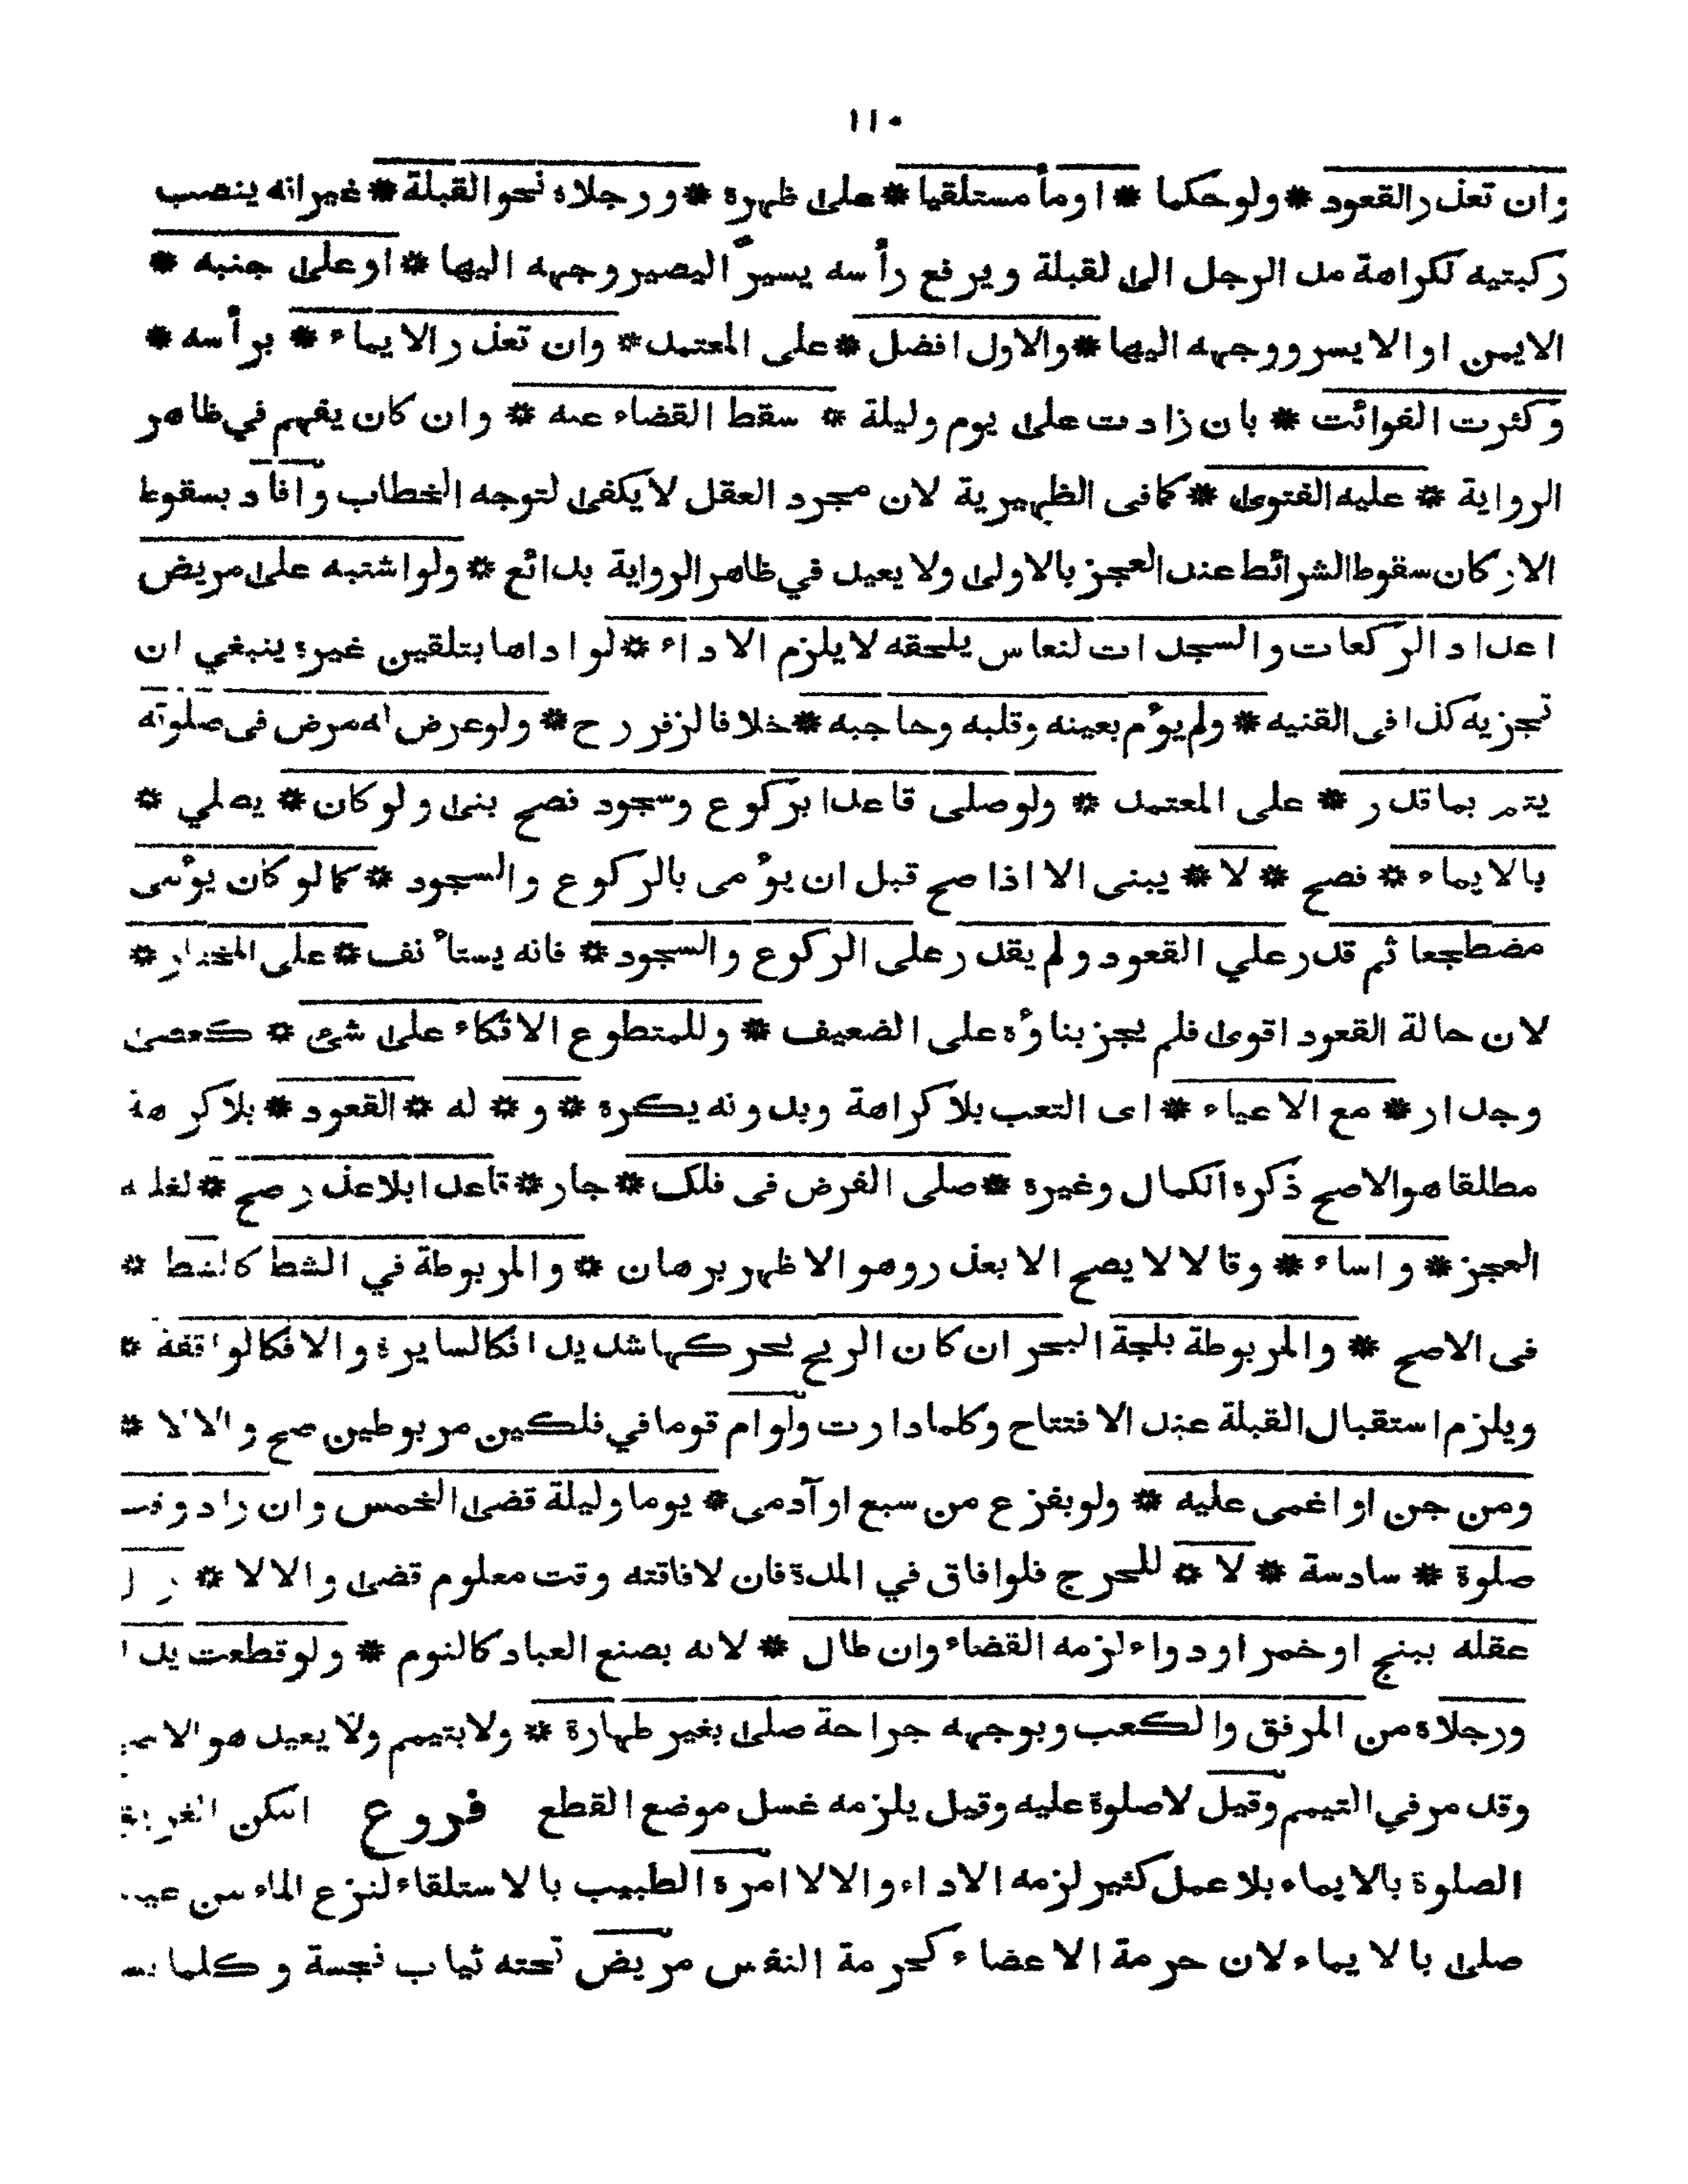 ١١٠
وان تعذر القعود * ولو حكما * اومأ مستلقيا * على ظهره * ورجلاه نحو القبلة * غير انه ينصب
ركبتيه لكراهة مد الرجل الى القبلة ويرفع رأسه يسيرًا ليصير وجهه اليها * او على جنبه *
الايمن او الايسر ووجهه اليها * والاول افضل * على المعتمد * وان تعذر الايماء * برأسه *
وكثرت الفوائت * بان زادت على يوم وليلة * سقط القضاء عنه * وان كان يفهم في ظاهر
الرواية * عليه الفتوى * كما فى الظهيرية لان مجرد العقل لا يكفى لتوجه الخطاب وافاد بسقوط
الاركان سقوط الشرائط عند العجز بالاولى ولا يعيد في ظاهر الرواية بدائع * ولو اشتبه على مريض
اعداد الركعات والسجدات لنعاس يلحقه لا يلزم الاداء * لو اداها بتلقين غيره ينبغي ان
تجزيه كذا فى القنيه * ولم يؤم بعينه وقلبه وحاجبه * خلافا لزفر رح * ولو عرض له مرض فى صلوته
يتم بما قدر * على المعتمد * ولو صلى قاعدا بركوع وسجود فصح بنى ولو كان * يصلي *
بالايماء * فصح * لا * يبنى الا اذا صح قبل ان يؤمى بالركوع والسجود * كما لو كان يؤمى
مضطجعا ثم قدر علي القعود ولم يقدر على الركوع والسجود * فانه يستأنف * على المختار *
لان حالة القعود اقوى فلم يجز بناؤه على الضعيف * وللمتطوع الاتكاء على شئ * كعصى
وجدار * مع الاعياء * اى التعب بلا كراهة وبدونه يكره * و * له * القعود * بلا كرهة
مطلقا هو الاصح ذكره الكمال وغيره * صلى الفرض فى فلك * جار * قاعدا بلا عذر صح * لغلبة
العجز * واساء * وقالا لا يصح الا بعذر وهو الاظهر برهان * والمربوطة في الشط كالشط *
فى الاصح * والمربوطة بلجة البحر ان كان الريح يحركها شديدا فكالسايرة والا فكالواقفة *
ويلزم استقبال القبلة عند الافتتاح وكلما دارت ولو ام قوما في فلكين مربوطين صح والا لا *
ومن جن او اغمى عليه * ولو بفزع من سبع او آدمى * يوما وليلة قضى الخمس وان زاد وقت
صلوة * سادسة * لا * للحرج فلو افاق في المدة فان لافاقته وقت معلوم قضى والا لا *
عقله ببنج او خمر او دواء لزمه القضاء وان طال * لانه بصنع العباد كالنوم * ولو قطعت يدا
ورجلاه من المرفق والكعب وبوجهه جراحة صلى بغير طهارة * ولا بتيمم ولا يعيد هو الاصح
وقد مر في التيمم وقيل لا صلوة عليه وقيل يلزمه غسل موضع القطع فروع امكن الغريق
الصلوة بالايماء بلا عمل كثير لزمه الاداء والا لا امره الطبيب بالاستلقاء لنزع الماء من
صلى بالايماء لان حرمة الاعضاء كحرمة النفس مريض تحته ثياب نجسة وكلما